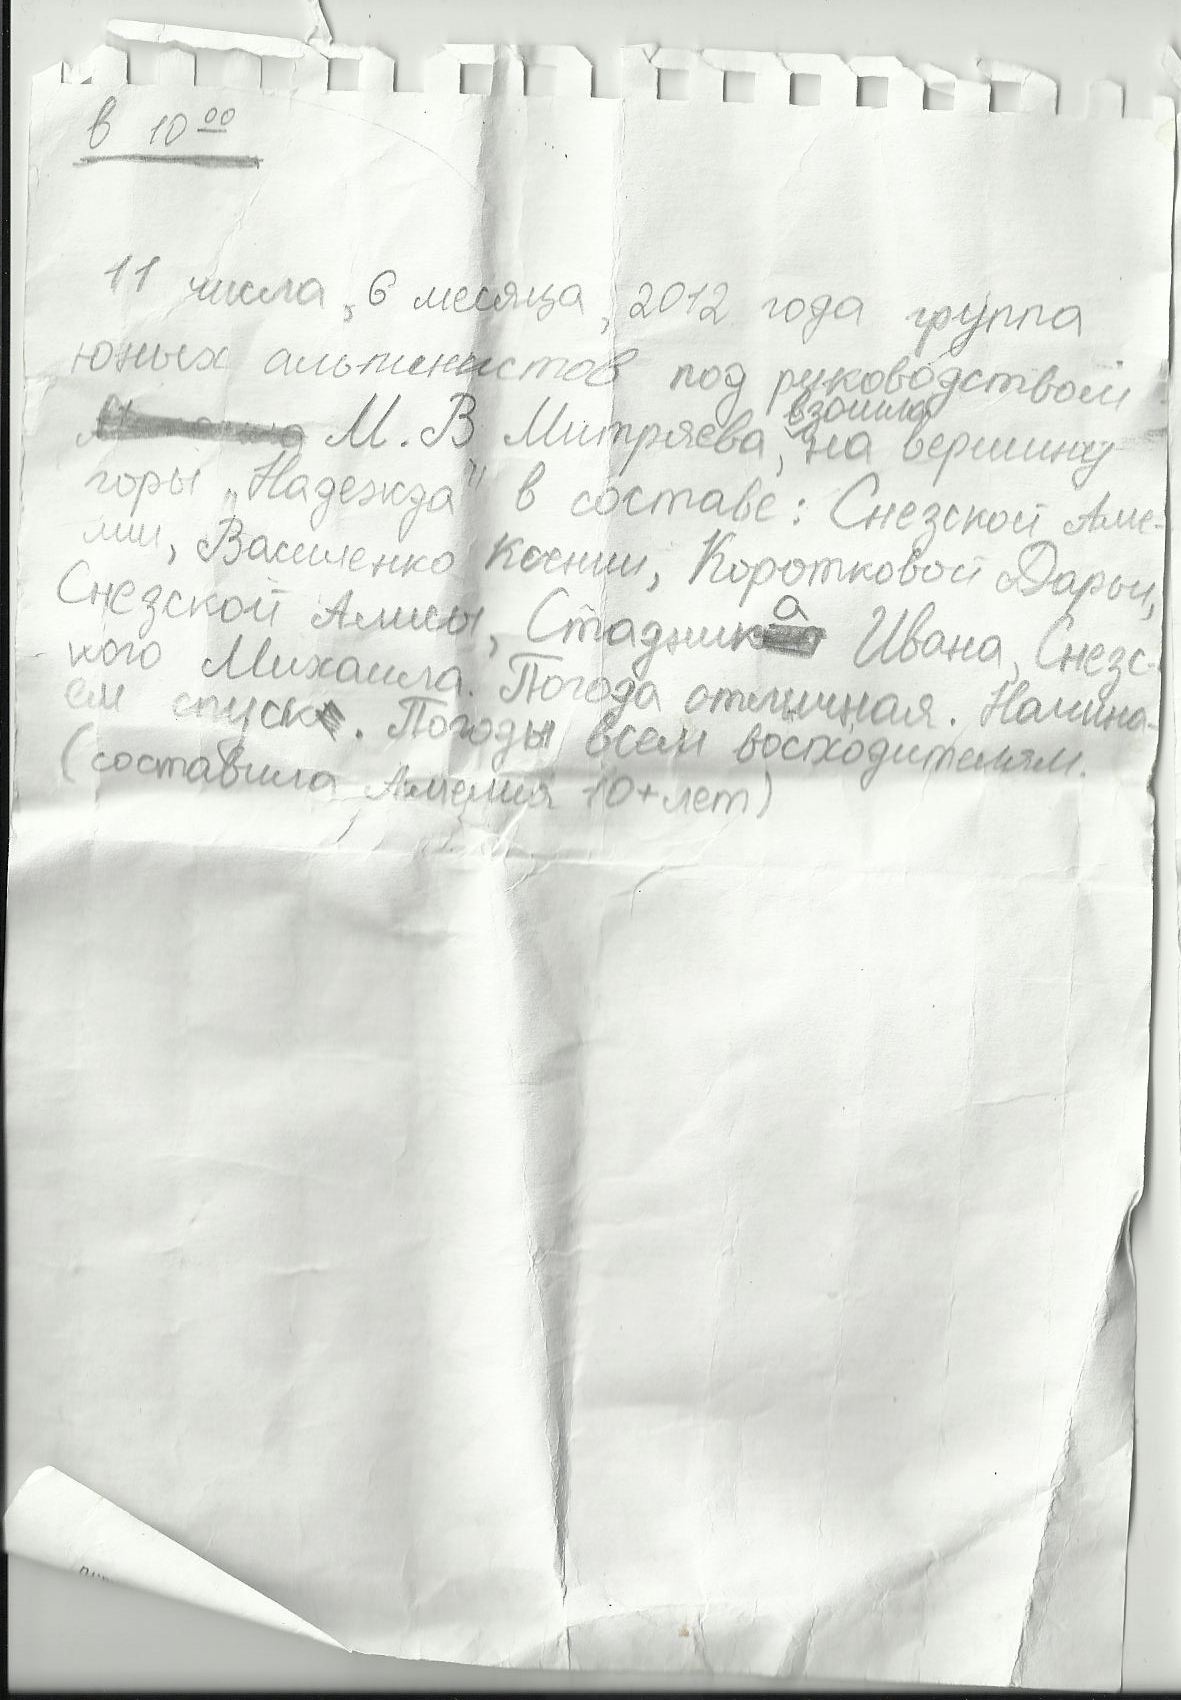 в 10 00
11 числа, 6 месяца, 2012 года группа
юных альпинистов под руководством
М.В Митряева, взошла на вершину
горы „Надежда" в составе: Снезской Аме-
лии, Василенко Ксении, Коротковой Дарьи,
Снезской Алисы, Стадника Ивана, Снезс-
кого Михаила. Погода отличная. Начина-
ем спуск. Погоды всем восходителям.
(составила Амелия 10+лет)